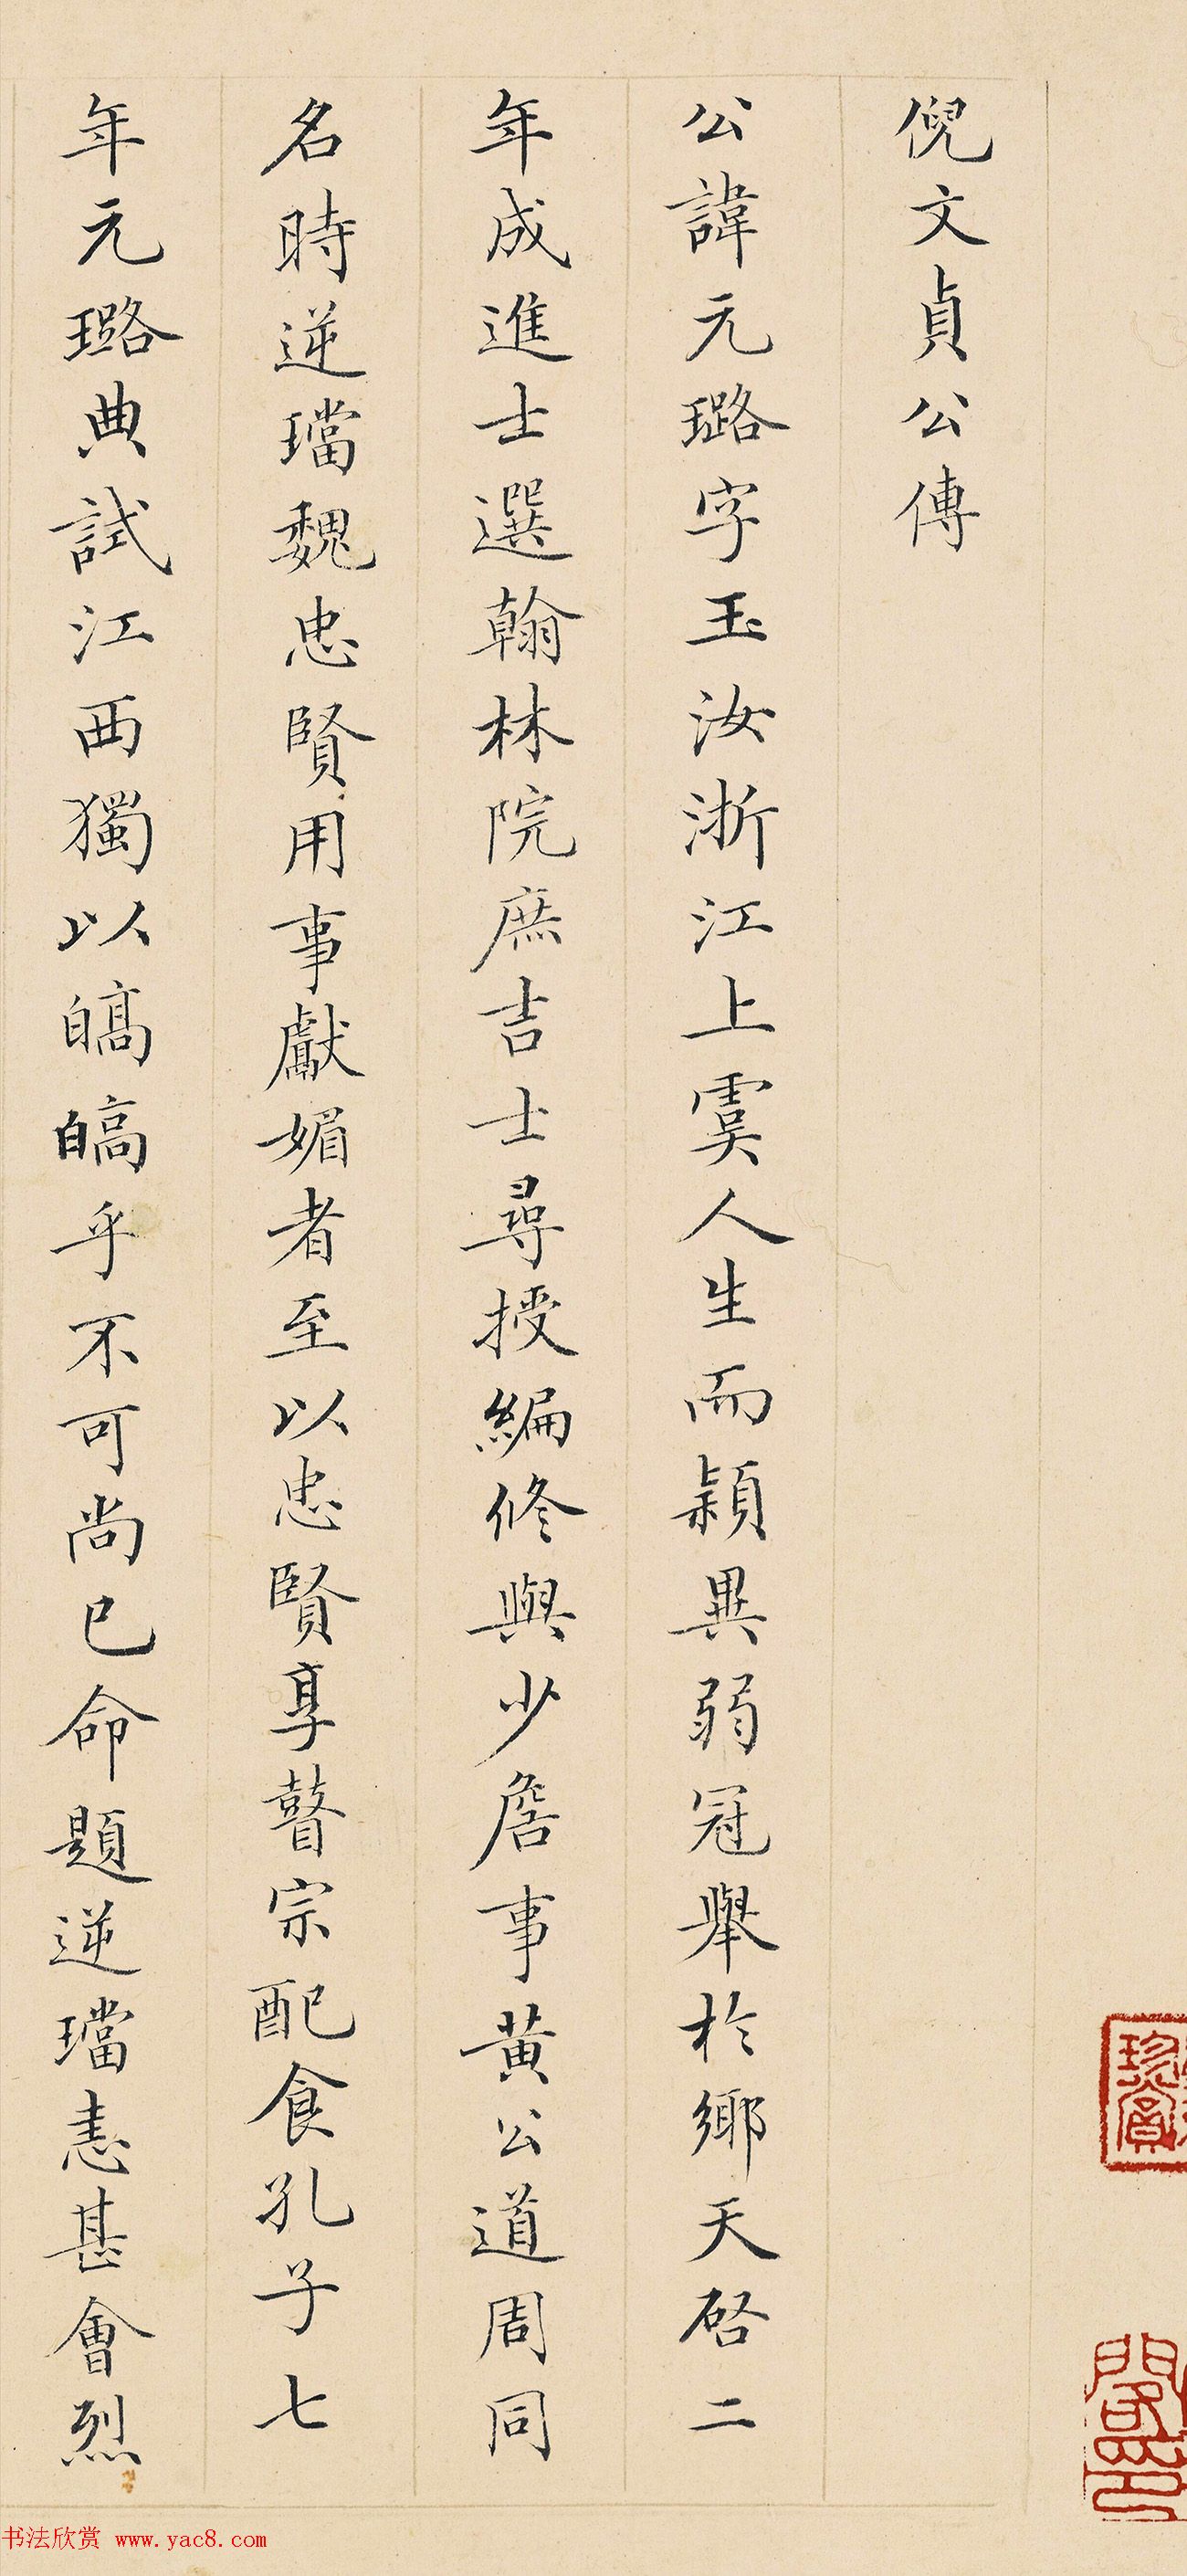 倪文貞公傳
公諱元璐字玉汝浙江上虞人生而穎異弱冠舉於鄉天啓二
年成進士選翰林院庶吉士尋授編修與少詹事黄公道周同
名時逆璫魏忠賢用事獻媚者至以忠賢享瞽宗配食孔子七
年元璐典試江西獨以皜皜乎不可尚已命題逆璫恚甚會烈
珍賞
书法欣赏 www.yac8.com